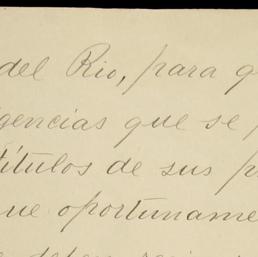 del Rio, para q
gencias que se p
títulos de sus p
ue oportuname